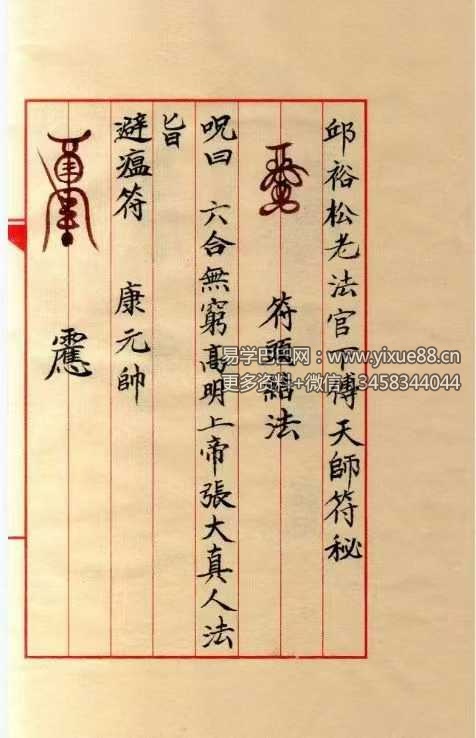 邱裕松老法官下傳天師符秘
符頭結法
呪曰 六合無窮高明上帝張大真人法
旨
避瘟符 康元帥
靈
易学巴巴网：www.yixue88.cn
更多资料+微信13458344044